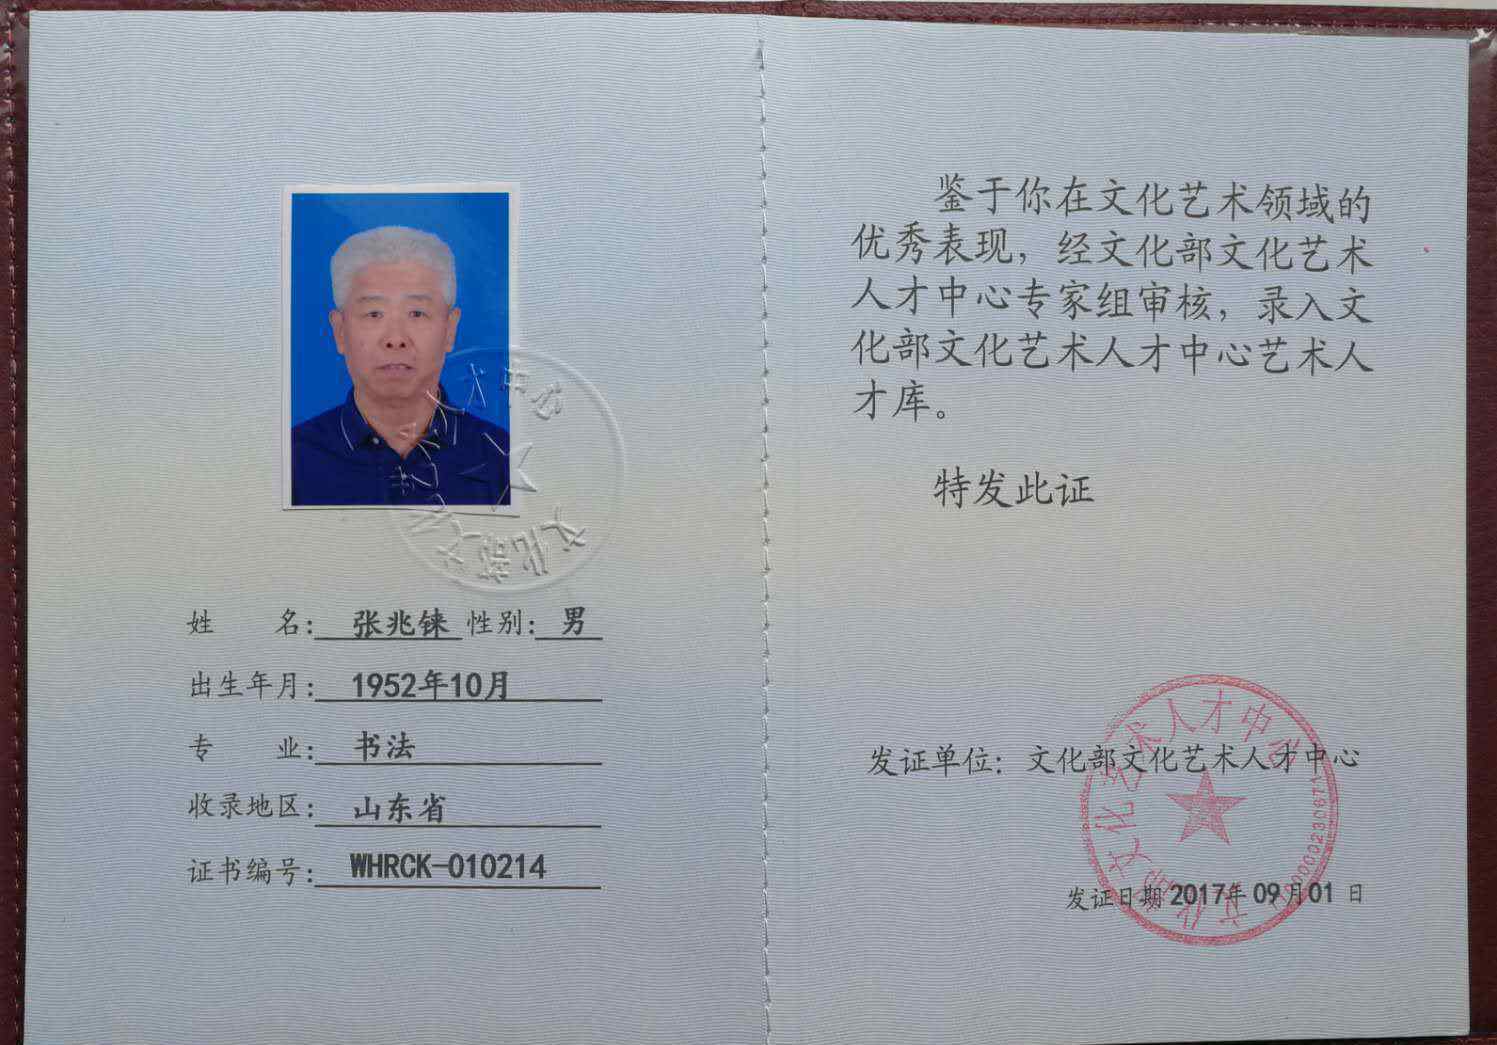 姓 名： 张兆铼 性别： 男
出生年月： 1952年10月
专 业： 书法
收录地区： 山东省
证书编号： WHRCK-010214
文化部文化艺术人才中心
鉴于你在文化艺术领域的
优秀表现，经文化部文化艺术
人才中心专家组审核，录入文
化部文化艺术人才中心艺术人
才库。
特发此证
发证单位： 文化部文化艺术人才中心
发证日期 2017年 09月01 日
文化部文化艺术人才中心